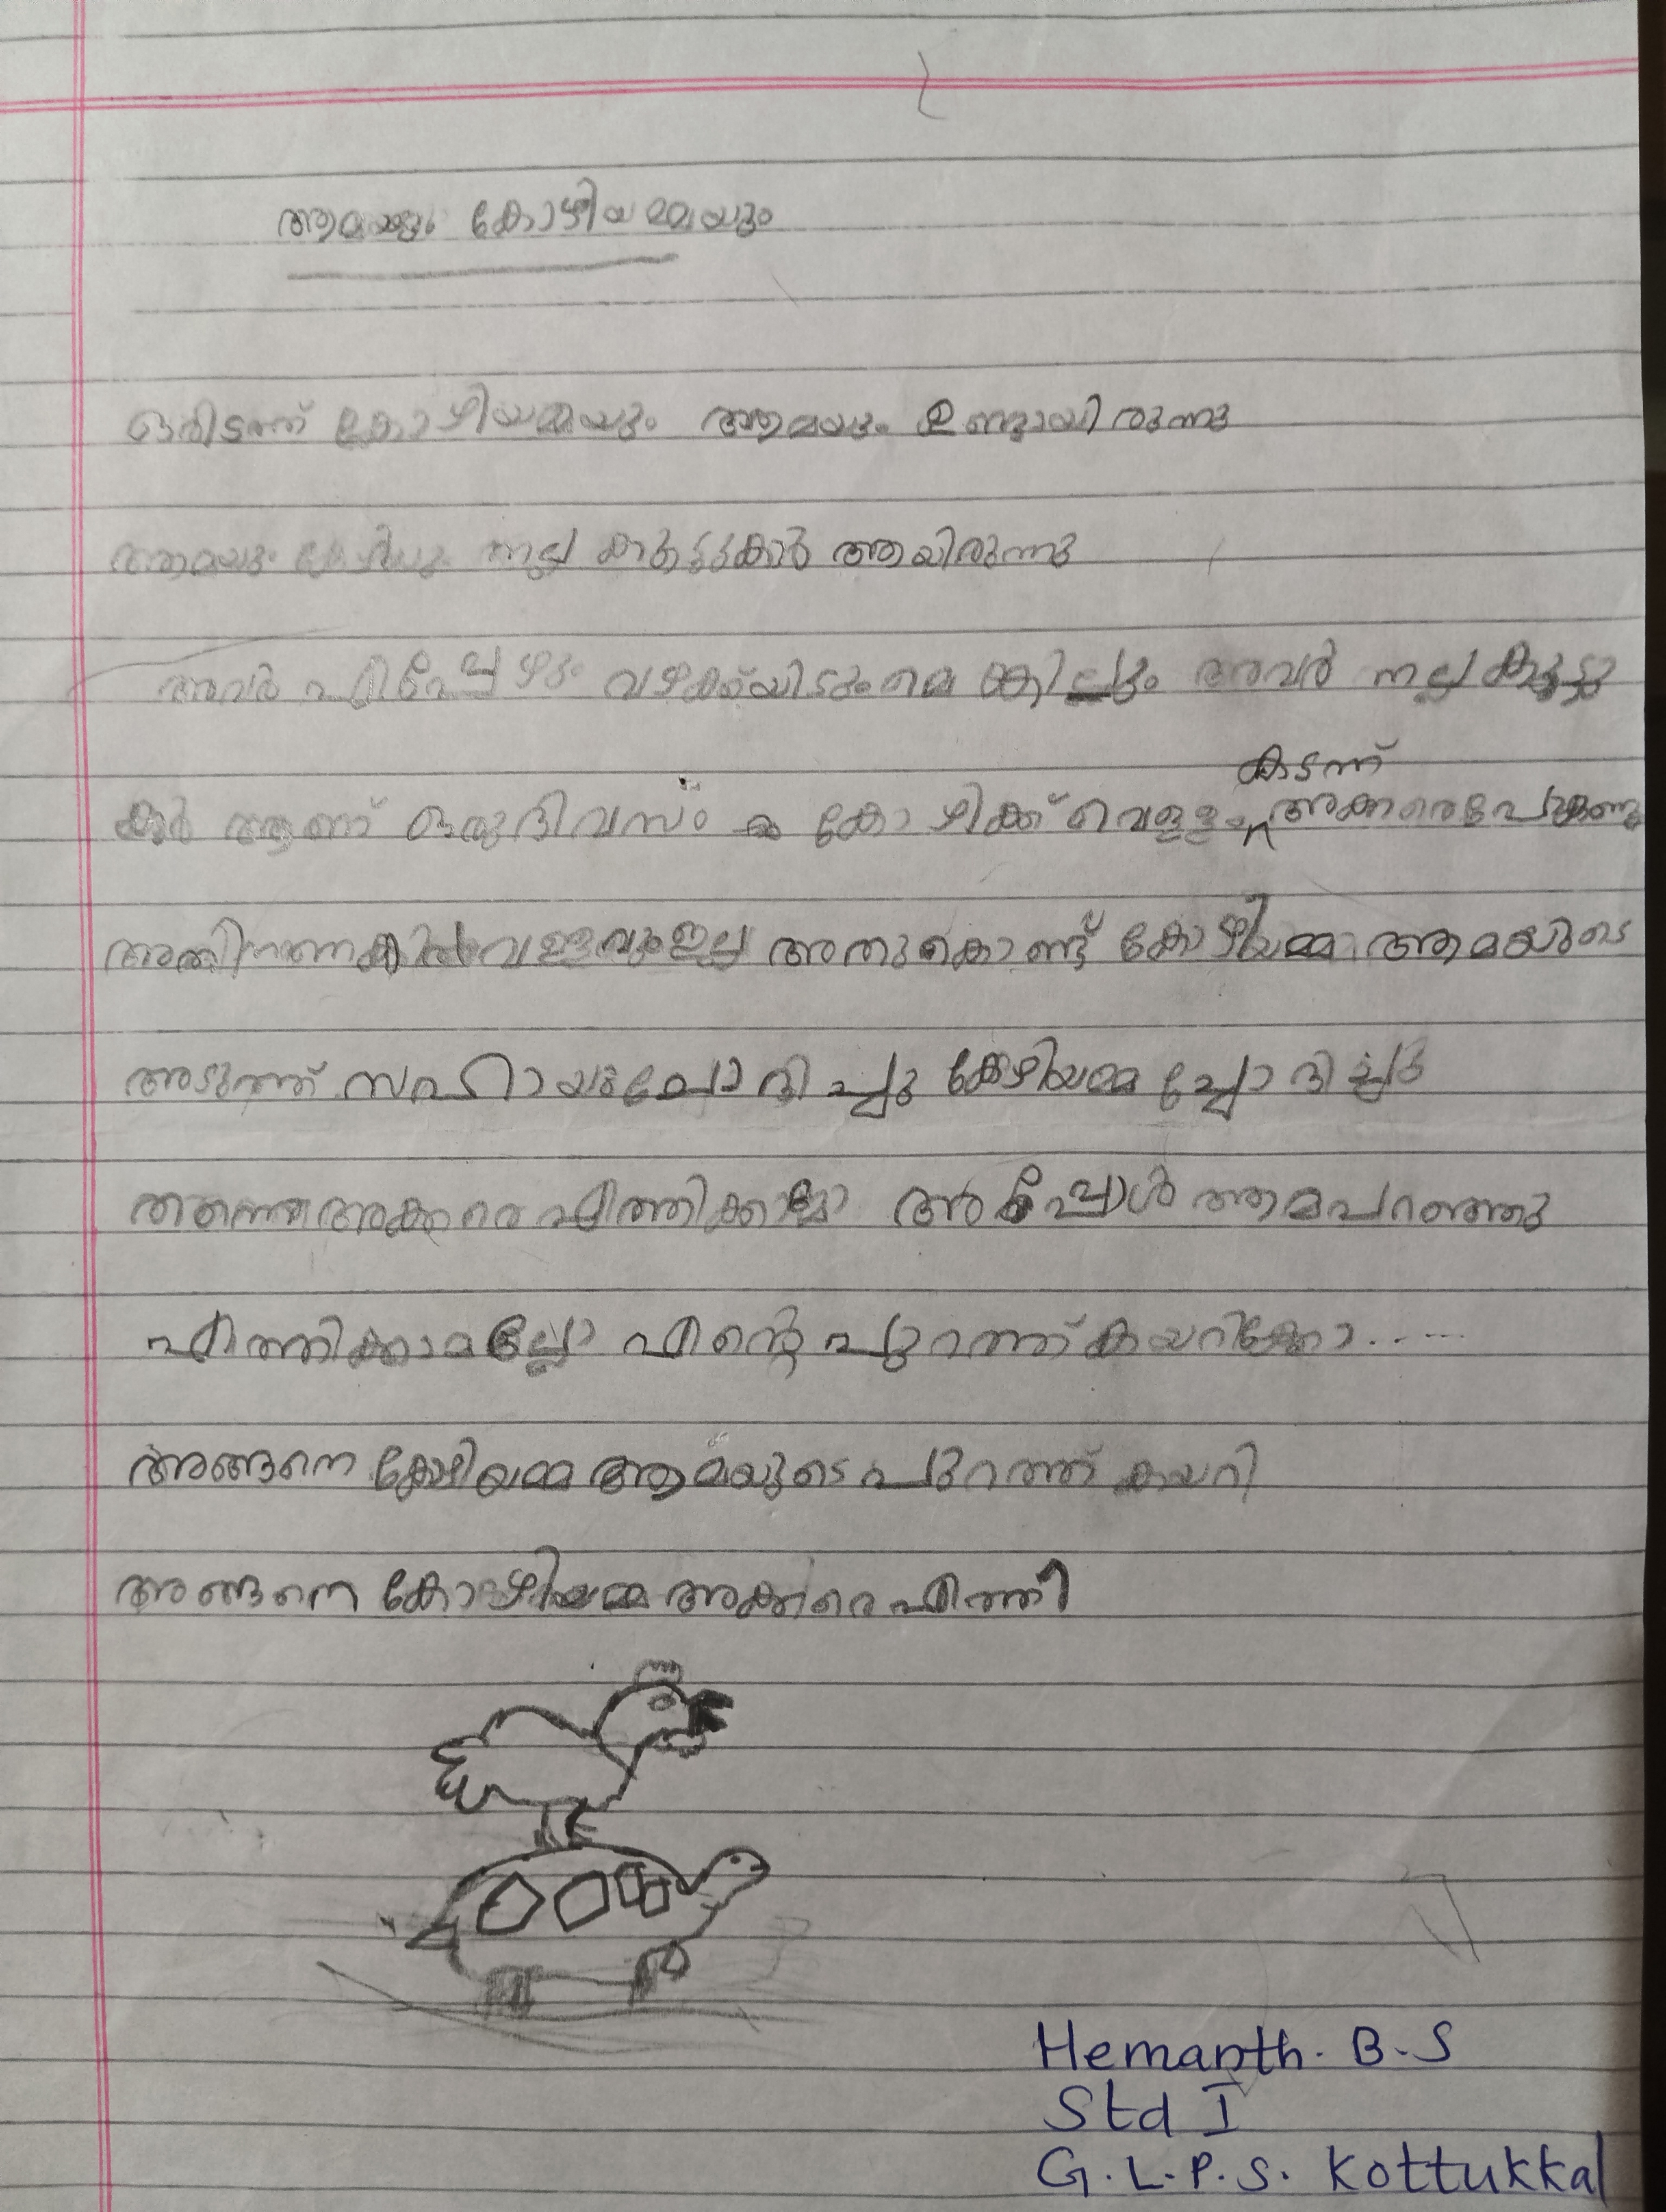 ആമയും കോഴിയമ്മയും
ഒരിടത്ത് കോഴിയമ്മയും ആമയും ഉണ്ടായിരുന്നു
ആമയും കോഴിയും നല്ല കൂട്ടുകാർ ആയിരുന്നു
അവർ എപ്പേഴും വഴക്ക്യിടുംമെങ്കിലും അവർ നല്ല കൂട്ടു
കർ ആണ് ഒരുദിവസം കോഴിക്ക് വെള്ളം കടന്ന് അക്കരെപേകണം
അതിനണകിൽ വള്ളവുംഇല്ല അതുകൊണ്ട് കോഴിയമ്മ ആമയുടെ
അടുത്ത് സഹായംചോദിച്ചു കേഴിയമ്മ ച്ചോദിച്ചു
തന്നെഅക്കരെഎത്തിക്കാമോ അപ്പോൾ ആമപറഞ്ഞു
എത്തിക്കാമല്ലോ എന്റെ പുറത്ത് കയറിക്കോ......
അങ്ങനെ കോഴിയമ്മ ആമയുടെ പുറത്ത് കയറി
അങ്ങനെ കോഴിയമ്മ അക്കരെ എത്തീ
Hemanth. B.S
Std I
G.L.P.S. Kottukkal